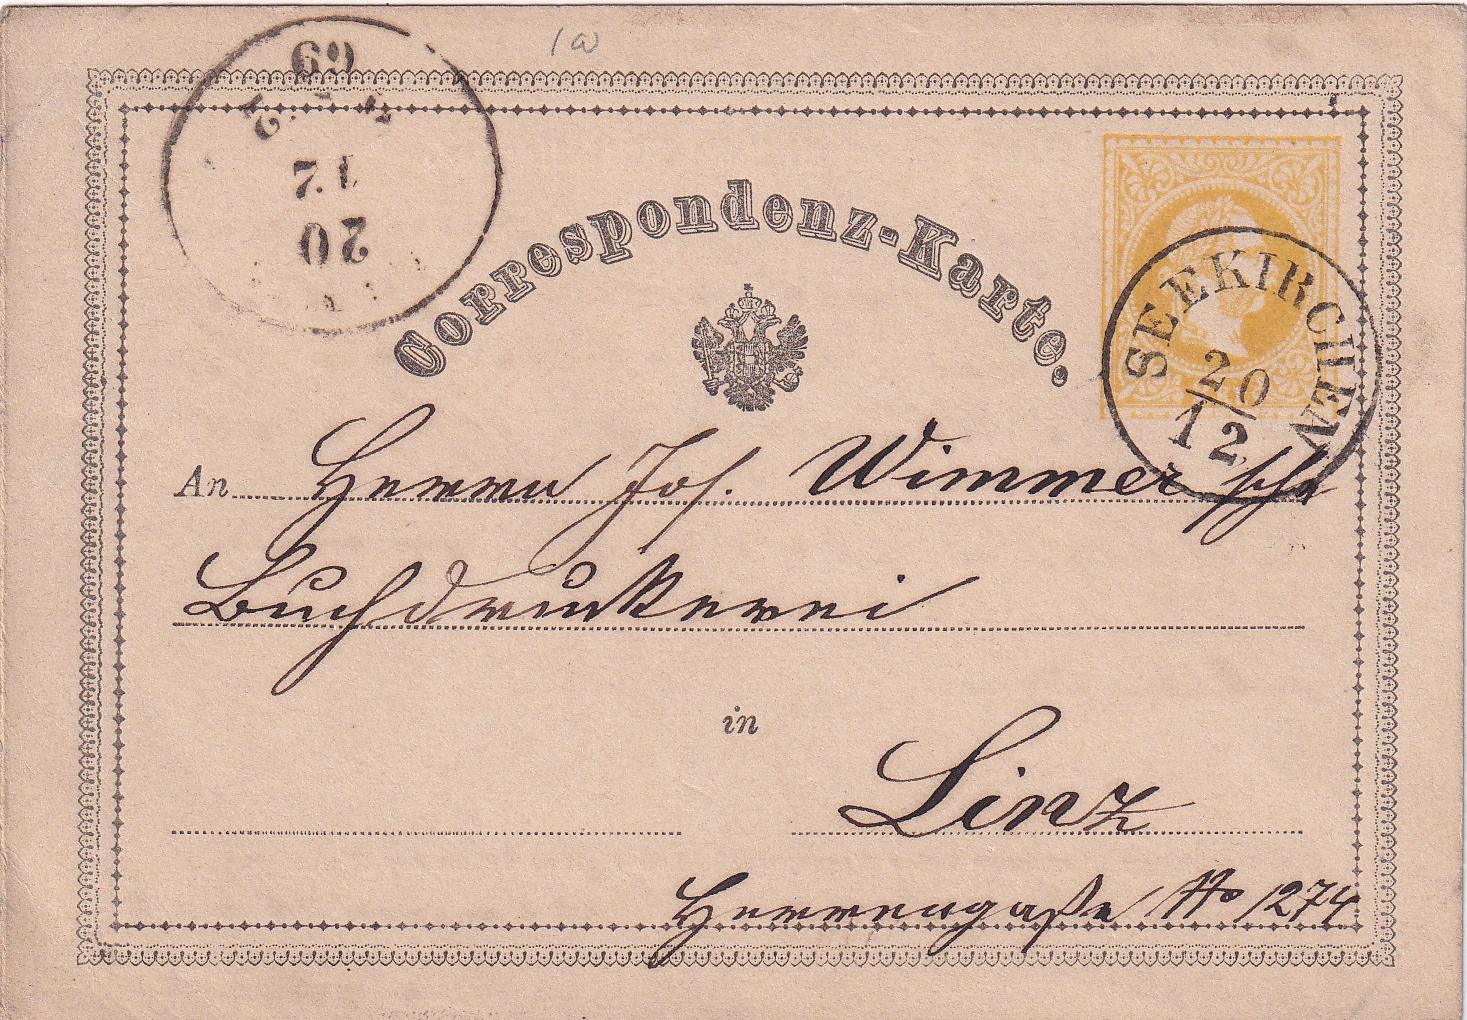 1a
69
12
20
Correspondenz-Karte.
SEEKIRCHEN
20
12
An Herrn Jos. Wimmer'sche
Buchdruckerei
in
Linz
Herrengaße No 1274